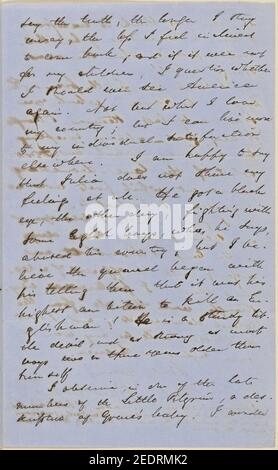 say the truth, the longer I stay
away, the less I feel inclined
to come back; and if it were not
for my children, I question whether
I should ever see America
again. Not but what I love
my country; but I can live more
to my individual satisfaction
elsewhere. I am happy to say
that Julian does not share my
feelings at all. He got a black
eye, the other day, fighting with
some English boys, who, he says,
abused his country; but I be-
lieve the quarrel began with
his telling them that it was his
highest ambition to kill an En-
glishman! He is a sturdy
the devil and as strong as most
boys two or three years older than
himself.
I observe, in one of the late
numbers of the Little Pilgrim, a des-
cription of Grace's baby. I wonder
alamy
Image ID: 2E0RMK2
www.alamy.com